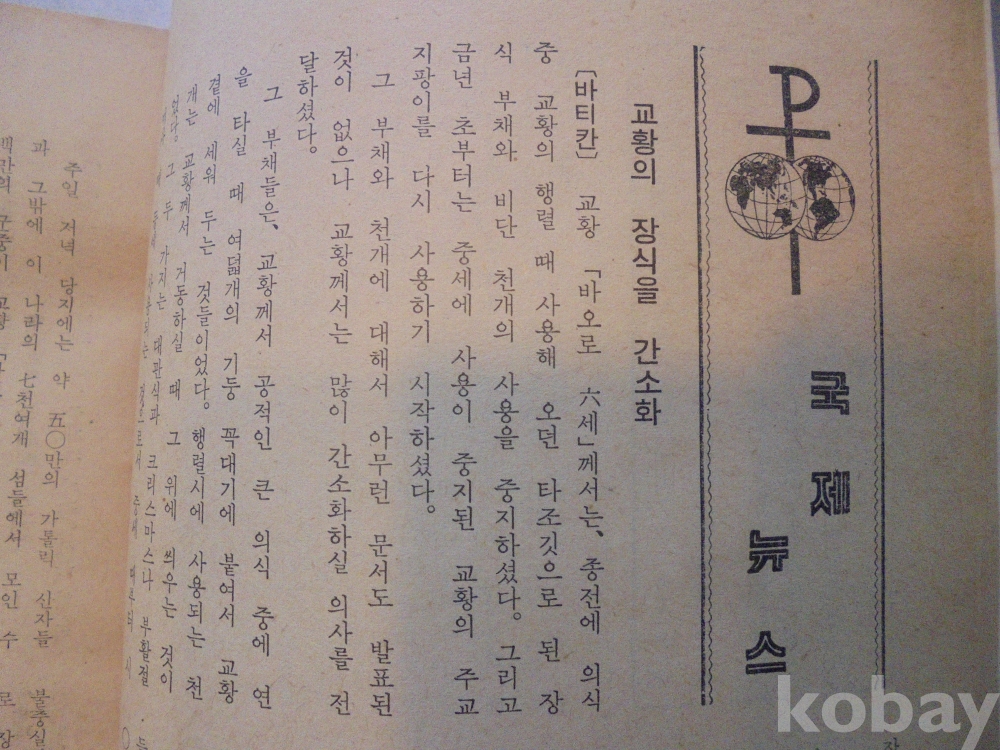 국제
뉴스
교황의 장식을 간소화
〔바티칸〕 교황 「바오로 六세」께서는、종전에 의식
중 교황의 행렬 때 사용해 오던 타조깃으로 된 장
식 부채와 비단 천개의 사용을 중지하셨다。그리고
금년 초부터는 중세에 사용이 중지된 교황의 주교
지팡이를 다시 사용하기 시작하셨다。
그 부채와 천개에 대해서 아무런 문서도 발표된
것이 없으나 교황께서는 많이 간소화하실 의사를 전
달하셨다。
그 부채들은、교황께서 공적인 큰 의식 중에 연
을 타실 때 여덟개의 기둥 꼭대기에 붙여서 교황
곁에 세워 두는 것들이었다。행렬시에 사용되는 천
개는 교황께서 거동하실 때 그 위에 씌우는 것이
었다。그 두 가지는 대관식과 크리스마스나 부활절
주일 저녁 당지에는 약 五〇만의 가톨릭 신자들
과 그밖에 이 나라의 七천여개 섬들에서 모인 수
백만의 군중이 교황
kobay